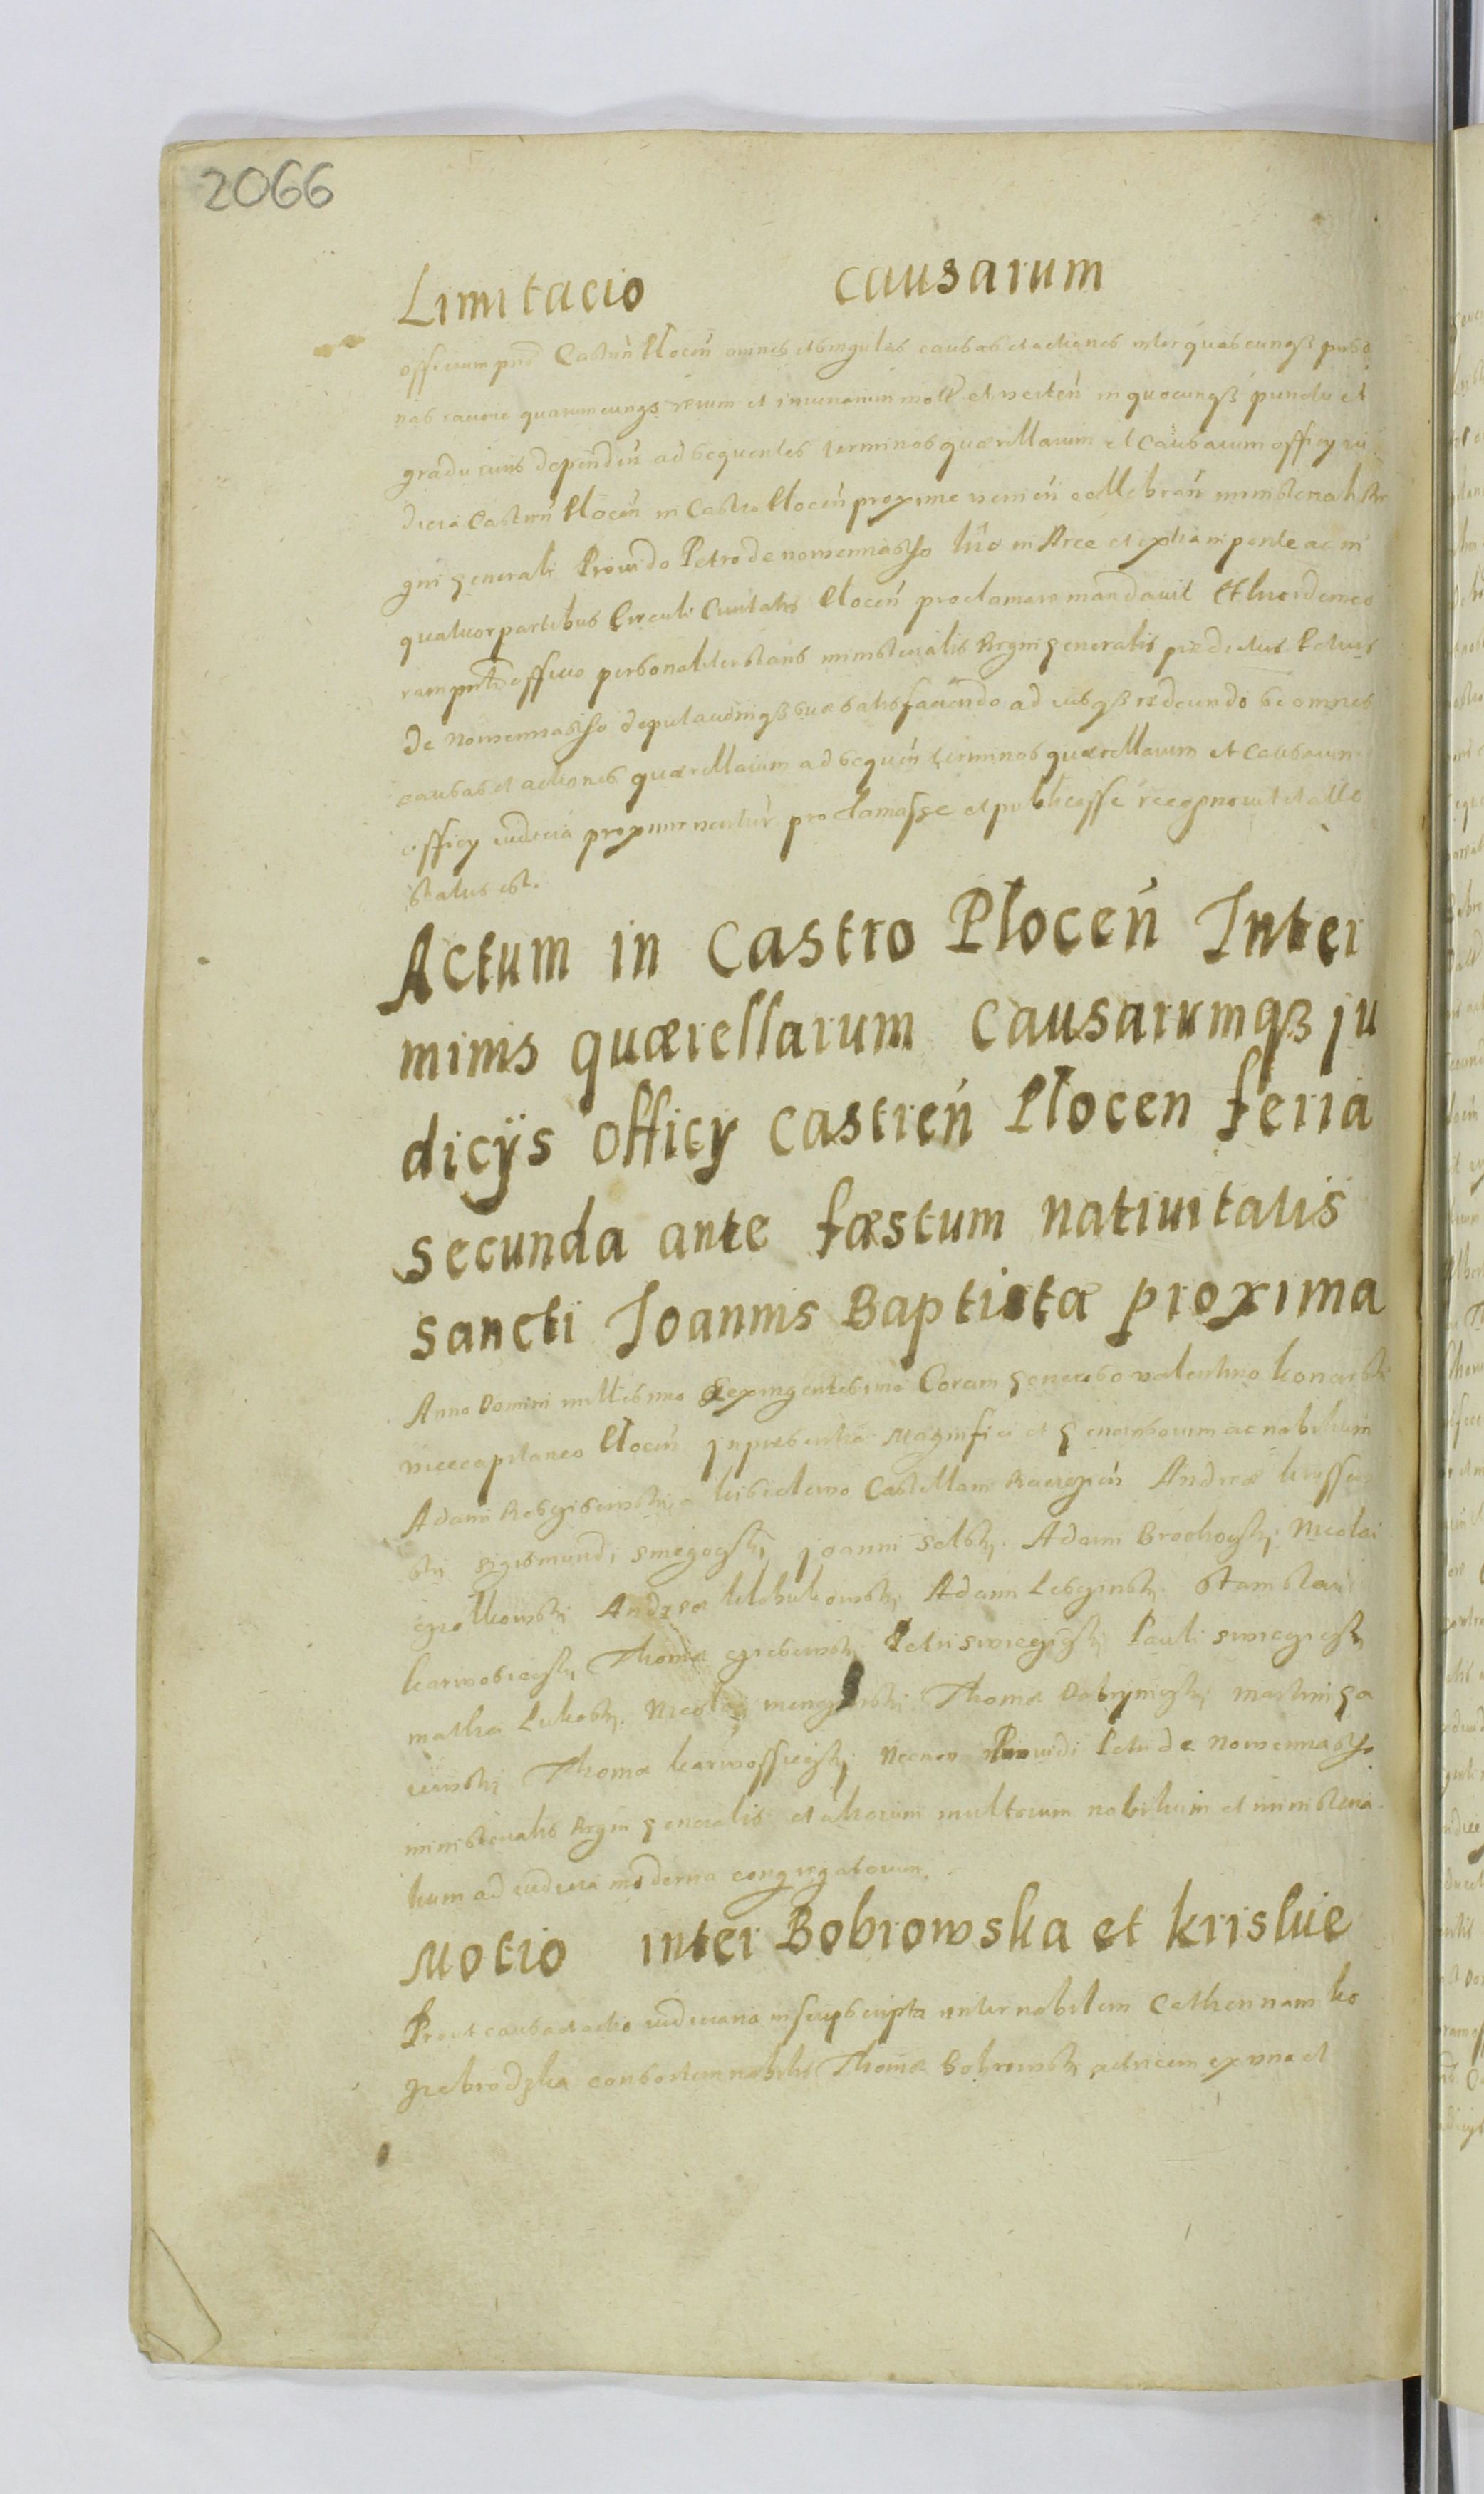 2066
Limitacio causarum
officium Castren̄ Plocen̄ omnes et singulas causas et actiones inter quascunqȝ perso
nas racione quarumcunqȝ rerum et iniuriarum et in quocunqȝ punctu et
gradu iuris dependen̄ ad sequentes terminos quærellarum et causarum officy iu
dicia Castren̄ Plocen̄ in Castro Plocen̄ proxime venien̄ cellebran̄ ministerialis Re
gni generali Prouido Petro de nowemiasto hic in Arce et extra in ponte ac in
quatuor partibus Circuli Ciuitatis Plocen̄ proclamare mandauit Et hic idem co
ram officio personaliter stans ministerialis Regni generalis prædictus Petrus
de nowemiasto deputationiqȝ suæ satisfaciendo ad iusqȝ redeundo se omnes
causas et actiones quærellarum ad sequen̄ terminos quærellarum et causarum
officy iudicia proxime proclamasse et publicasse recognouit et atte
status est.
Actum in Castro Plocen̄ In ter
minis quærellarum causarumqȝ ju
dicÿs officÿ castren̄ Plocen feria
secunda ante fæstum natiuitatis
sancti Joannis Baptistæ proxima
Anno Domini millesimo Sexingentesimo Coram generoso valentino konarski
vicecapitaneo Plocen̄ In præsentia Magnifici et generosorum ac nobilium
Adami Castellani Raciązen̄ Andreæ
ski Sigismundi joanni Adami Brochoczki Nicolai
Andreæ Adami Stanislai
karwosieczki Thomæ Petri Pauli
mathiæ Nicolai Thomæ Dobrzyniczki martini ga
Thomæ karwossieczki Necnon Prouidi Petri de nowemiasto
ministerialis Regni generalis et aliorum multorum nobilium et ministeria
lium ad iudicia moderna congregatorum.
Motio inter Bobrowska et kriskie
Prout causa et actio iudiciaria infrascripta inter nobilem Catherinam ko
zebrodzka consortem nobilis Thomæ Bobrowski actricem ex vna et